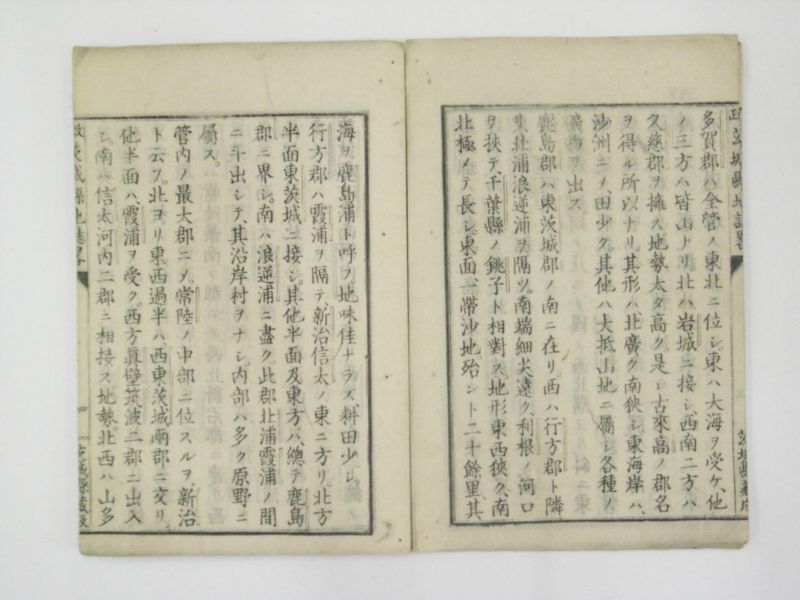 多賀郡ハ全管ノ東北ニ位シ、東ハ大海ヲ受ケ、他
ノ三方ハ皆山ナリ、北ハ岩城ニ接シ、西南二方ハ
久慈郡ヲ擁ス地勢太タ高ク、是レ古來高ノ郡名
ヲ得ル所以ナリ其形ハ北廣ク南狹シ東海岸ハ、
沙洲ニメ、田少ク、其他ハ大抵山地ニ屬シ各種ノ
礦物ヲ出ス。
鹿島郡ハ東茨城郡ノ南ニ在リ。西ハ行方郡ト隣
シ北浦浪逆浦ヲ隔ツ。南端細尖遠ク、利根ノ河口
ヲ挾テ、千葉縣ノ銚子ト相對ス、地形東西狹ク、南
北極メテ長シ、東面、一帶沙地、殆ント二十餘里、其
海ヲ鹿島浦ト呼フ地味佳ナラス、耕田少シ。
行方郡ハ霞浦ヲ隔テ、新治信太ノ東ニ方リ。北方
半面東茨城ニ接シ。其他半面及東方ハ、總テ鹿島
郡ニ界シ。南ハ浪逆浦ニ盡ク。此郡北浦霞浦ノ間
ニ斗出シテ、其沿岸村ヲナシ、内部ハ多ク原野ニ
屬ス。
管内ノ最大郡ニメ、常陸ノ中部ニ位スルヲ、新治
ト云フ。北ヨリ東西過半ハ西東茨城兩郡ニ交リ。
他半面ハ、霞浦ヲ受ク。西方眞壁筑波二郡ニ出入
シ南ハ信太河内二郡ニ相接ス地勢。北西ハ山多
茨城縣地誌畧
茨城縣藏版